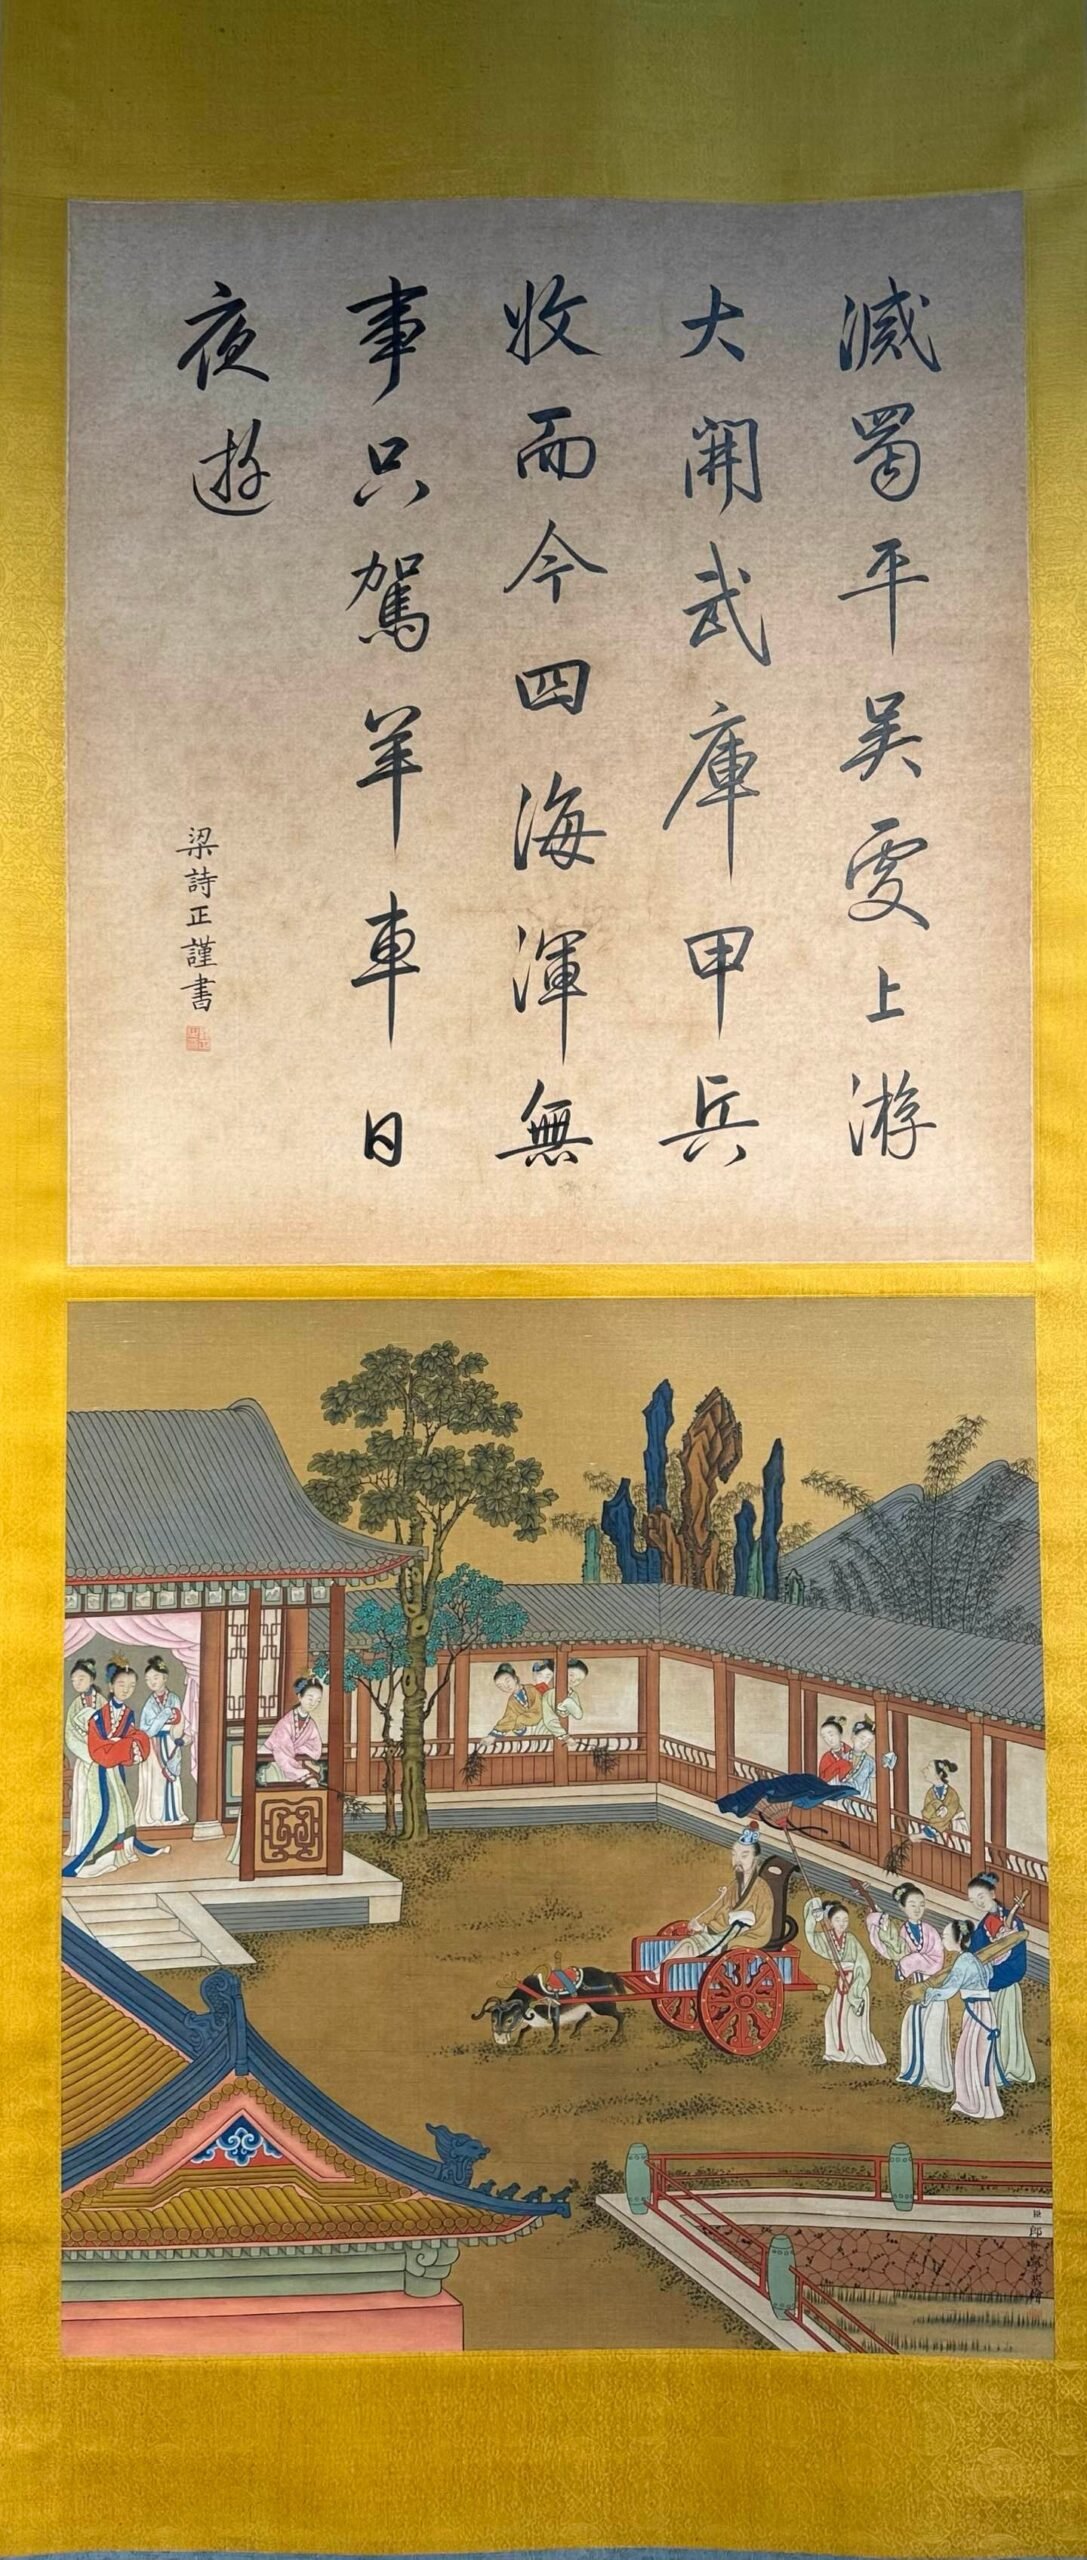 滅蜀平吴要上游
大開武庫甲兵
收而今四海渾無
事只駕羊車日
夜遊
梁詩正謹書
臣郎世寧恭繪